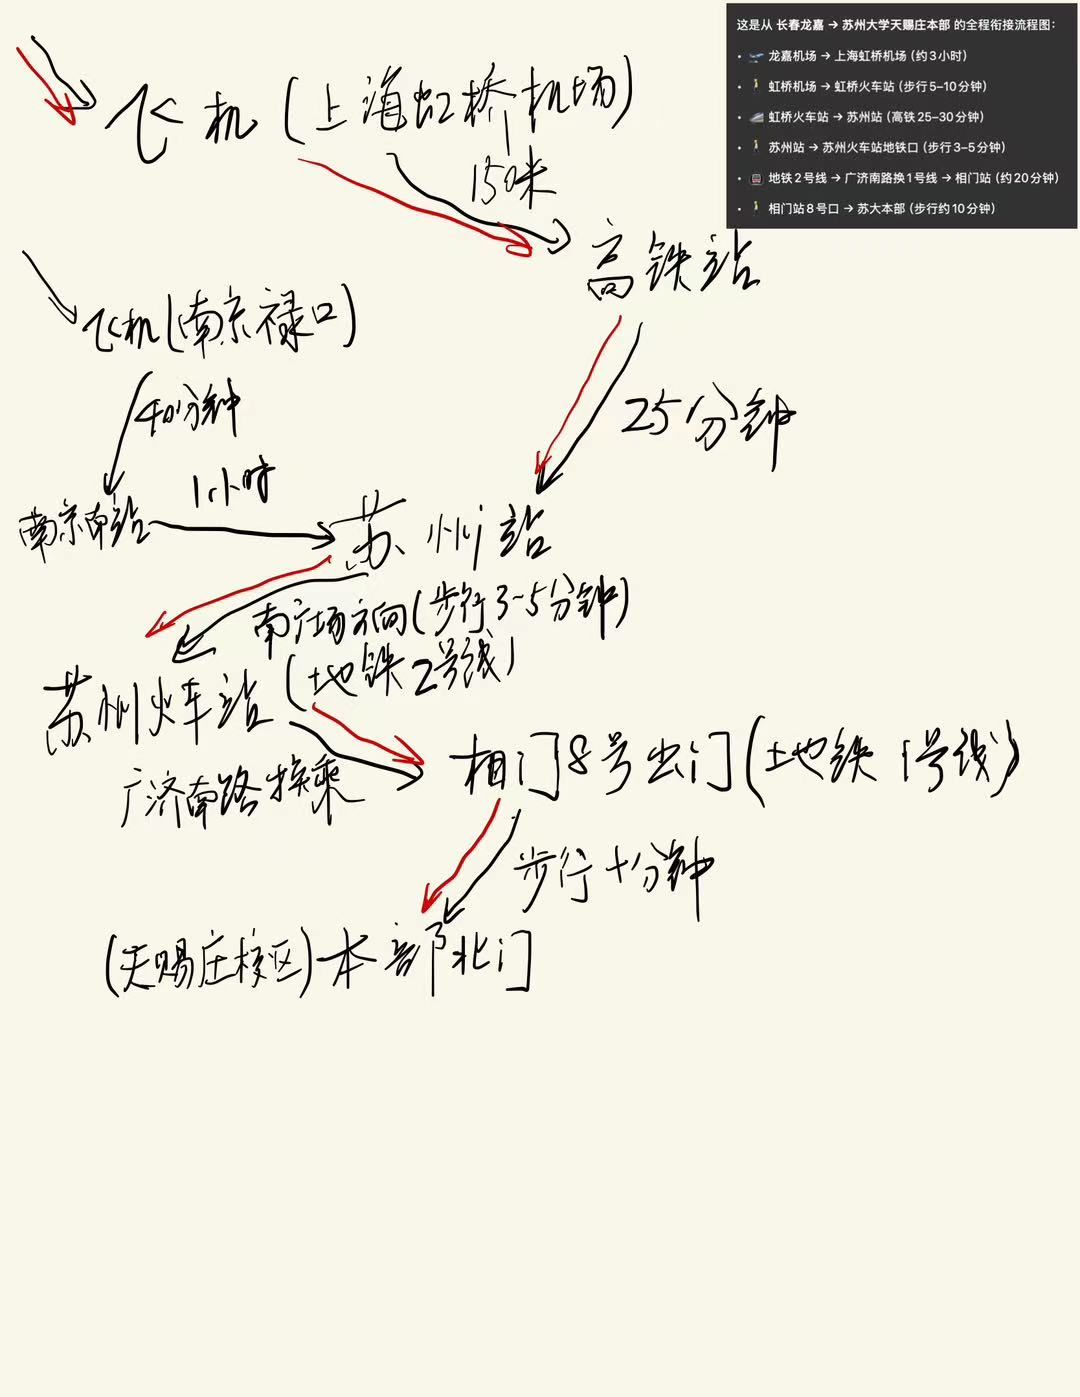 这是从 长春龙嘉 → 苏州大学天赐庄本部 的全程衔接流程图：
• 龙嘉机场 → 上海虹桥机场 (约3小时)
• 虹桥机场 → 虹桥火车站 (步行5–10分钟)
• 虹桥火车站 → 苏州站 (高铁25–30分钟)
• 苏州站 → 苏州火车站地铁口 (步行3–5分钟)
• 地铁2号线 → 广济南路换1号线 → 相门站 (约20分钟)
• 相门站8号口 → 苏大本部 (步行约10分钟)
飞机(上海虹桥机场)
150米
高铁站
飞机(南京禄口)
40分钟
25分钟
1小时
南京南站
苏州站
南广场方向(步行3~5分钟)
苏州火车站(地铁2号线)
相门8号出门(地铁1号线)
广济南路换乘
步行十分钟
(天赐庄校区)本部北门